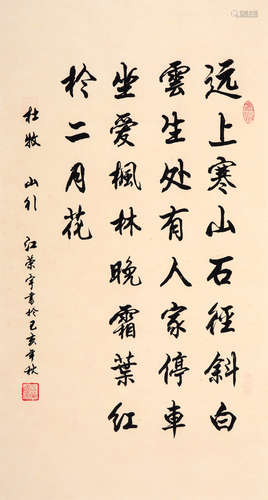 远上寒山石径斜白
雲生处有人家停車
坐爱楓林晚霜葉红
於二月花
杜牧 山行 江荣宇書於己亥年秋